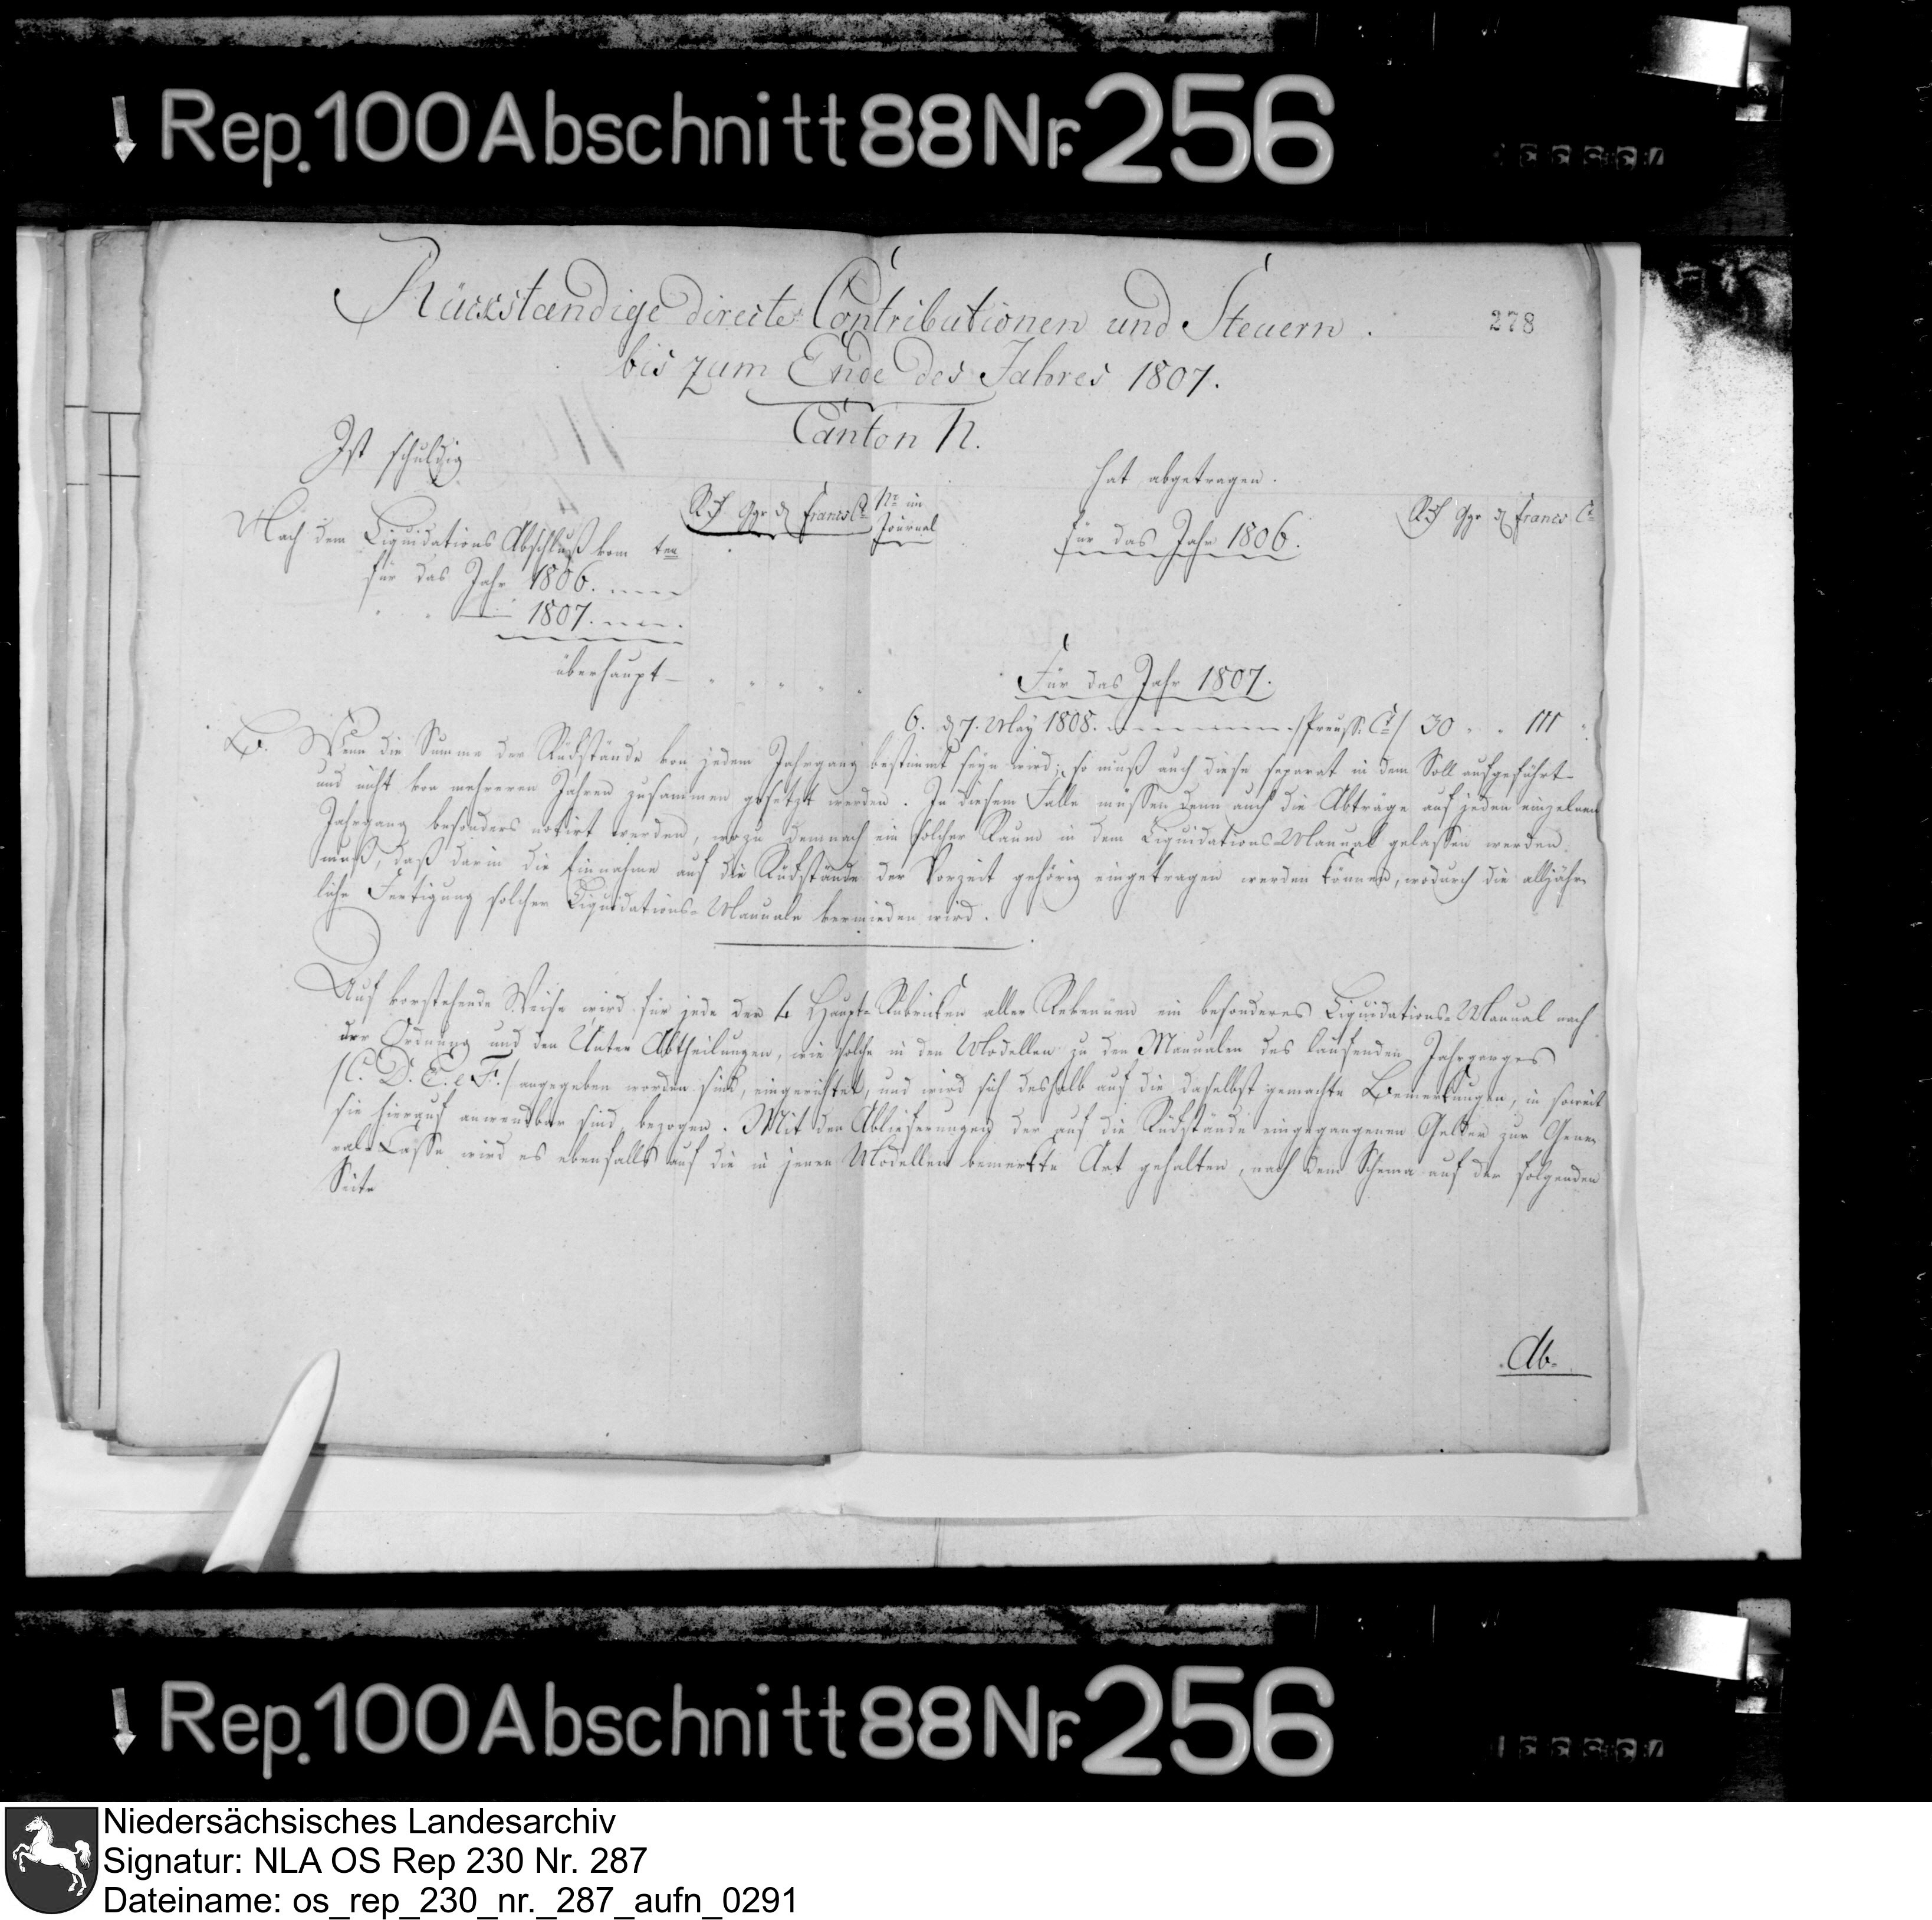 Rep. 100 Abschnitt 88 Nr. 256
278
Rückstændige directe Contributionen und Steuern.
bis zum Ende des Jahres 1807.
Canton N.
Ist schuldig
hat abgetragen.
Nach dem Liquidations Abschluß vom ten
für das Jahr 1806.
1807.
Ggr Francs Ct
Nr im
Journal
für das Jahr 1806.
Ggr Francs Ct
überhaupt
Für das Jahr 1807.
6. d 7. May 1808. /:Preuß: Ct/ 30
Wenn die Summe der Rückstände von jedem Jahrgang bestimmt seyn wird; so muß auch diese separat in dem Soll aufgeführt
und nicht von mehreren Jahren zusammen gesetzt werden. In diesem Falle müssen denn auch die Abträge auf jeden einzelnen
Jahrgang besonders notirt werden, wozu demnach ein solcher Raum in dem Liquidations-Manual gelassen werden
muß, daß darin die Einnahme auf die Rückstände der Vorzeit gehörig eingetragen werden können, wodurch die alljähr-
liche Fertigung solcher Liquidations-Manuale vermieden wird.
Auf vorstehende Weise wird für jede der 4 Haupt-Rubricken aller Revenüen ein besonderes Liquidations-Manual nach
der Ordnung und den Unter Abtheilungen, wie solche in den Modellen zu den Manualen des laufenden Jahrganges
/C. D. E. & F./ angegeben worden sind, eingerichtet, und wird sich deshalb auf die daselbst gemachte Bemerkungen, in soweit
sie hierauf anwendbar sind, bezogen. Mit den Ablieferungen der auf die Rückstände eingegangenen Gelder zur Gene-
ral-Casse wird es ebenfalls auf die in jenen Modellen bemerkte Art gehalten, nach dem Schema auf der folgenden
Seite
Ab-
Rep. 100 Abschnitt 88 Nr. 256
Niedersächsisches Landesarchiv
Signatur: NLA OS Rep 230 Nr. 287
Dateiname: os_rep_230_nr._287_aufn_0291